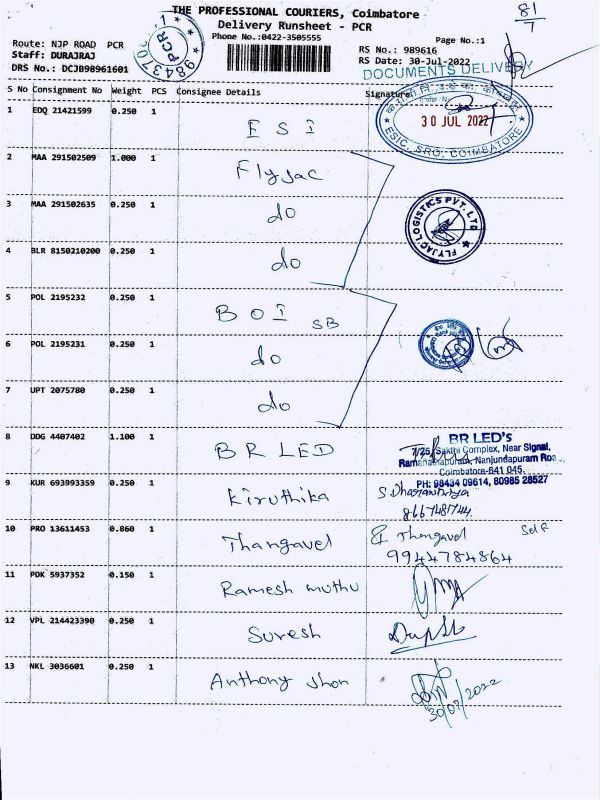 THE PROFESSIONAL COURIERS, Coimbatore
81/1
Delivery Runsheet - PCR
Phone No.:0422-3505555
Page No.:1
Route: NJP ROAD PCR
RS No.: 989616
Staff: DURAJRAJ
RS Date: 30-Jul-2022
DRS No.: DCJB98961601
PCR 98437
DOCUMENTS DELIVERY
S No Consignment No Weight PCS Consignee Details Signature
1 EDQ 21421599 0.250 1 ESI
30 JUL 2022
ESIC, SRO, COIMBATORE
2 MAA 291502509 1.000 1 Flyjac
3 MAA 291502635 0.250 1 do
FLYJAC LOGISTICS PVT. LTD
4 BLR 8150210200 0.250 1 do
5 POL 2195232 0.250 1 BOI SB
6 POL 2195231 0.250 1 do
7 UPT 2075780 0.250 1 do
8 DDG 4407402 1.100 1 BR LED
BR LED's
7/25, Sakthi Complex, Near Signal,
Ramanathapuram, Nanjundapuram Roa
Coimbatore-641 045.
PH: 98434 09614, 80985 28527
9 KUR 693993359 0.250 1 Kiruthika
8667481744
10 PRO 13611453 0.860 1 Thangavel Thangavel Self
9944784864
11 PDK 5937352 0.150 1 Ramesh muthu
12 VPL 214423390 0.250 1 Suresh
13 NKL 3036601 0.250 1 Anthony Jhon
30/07/2022